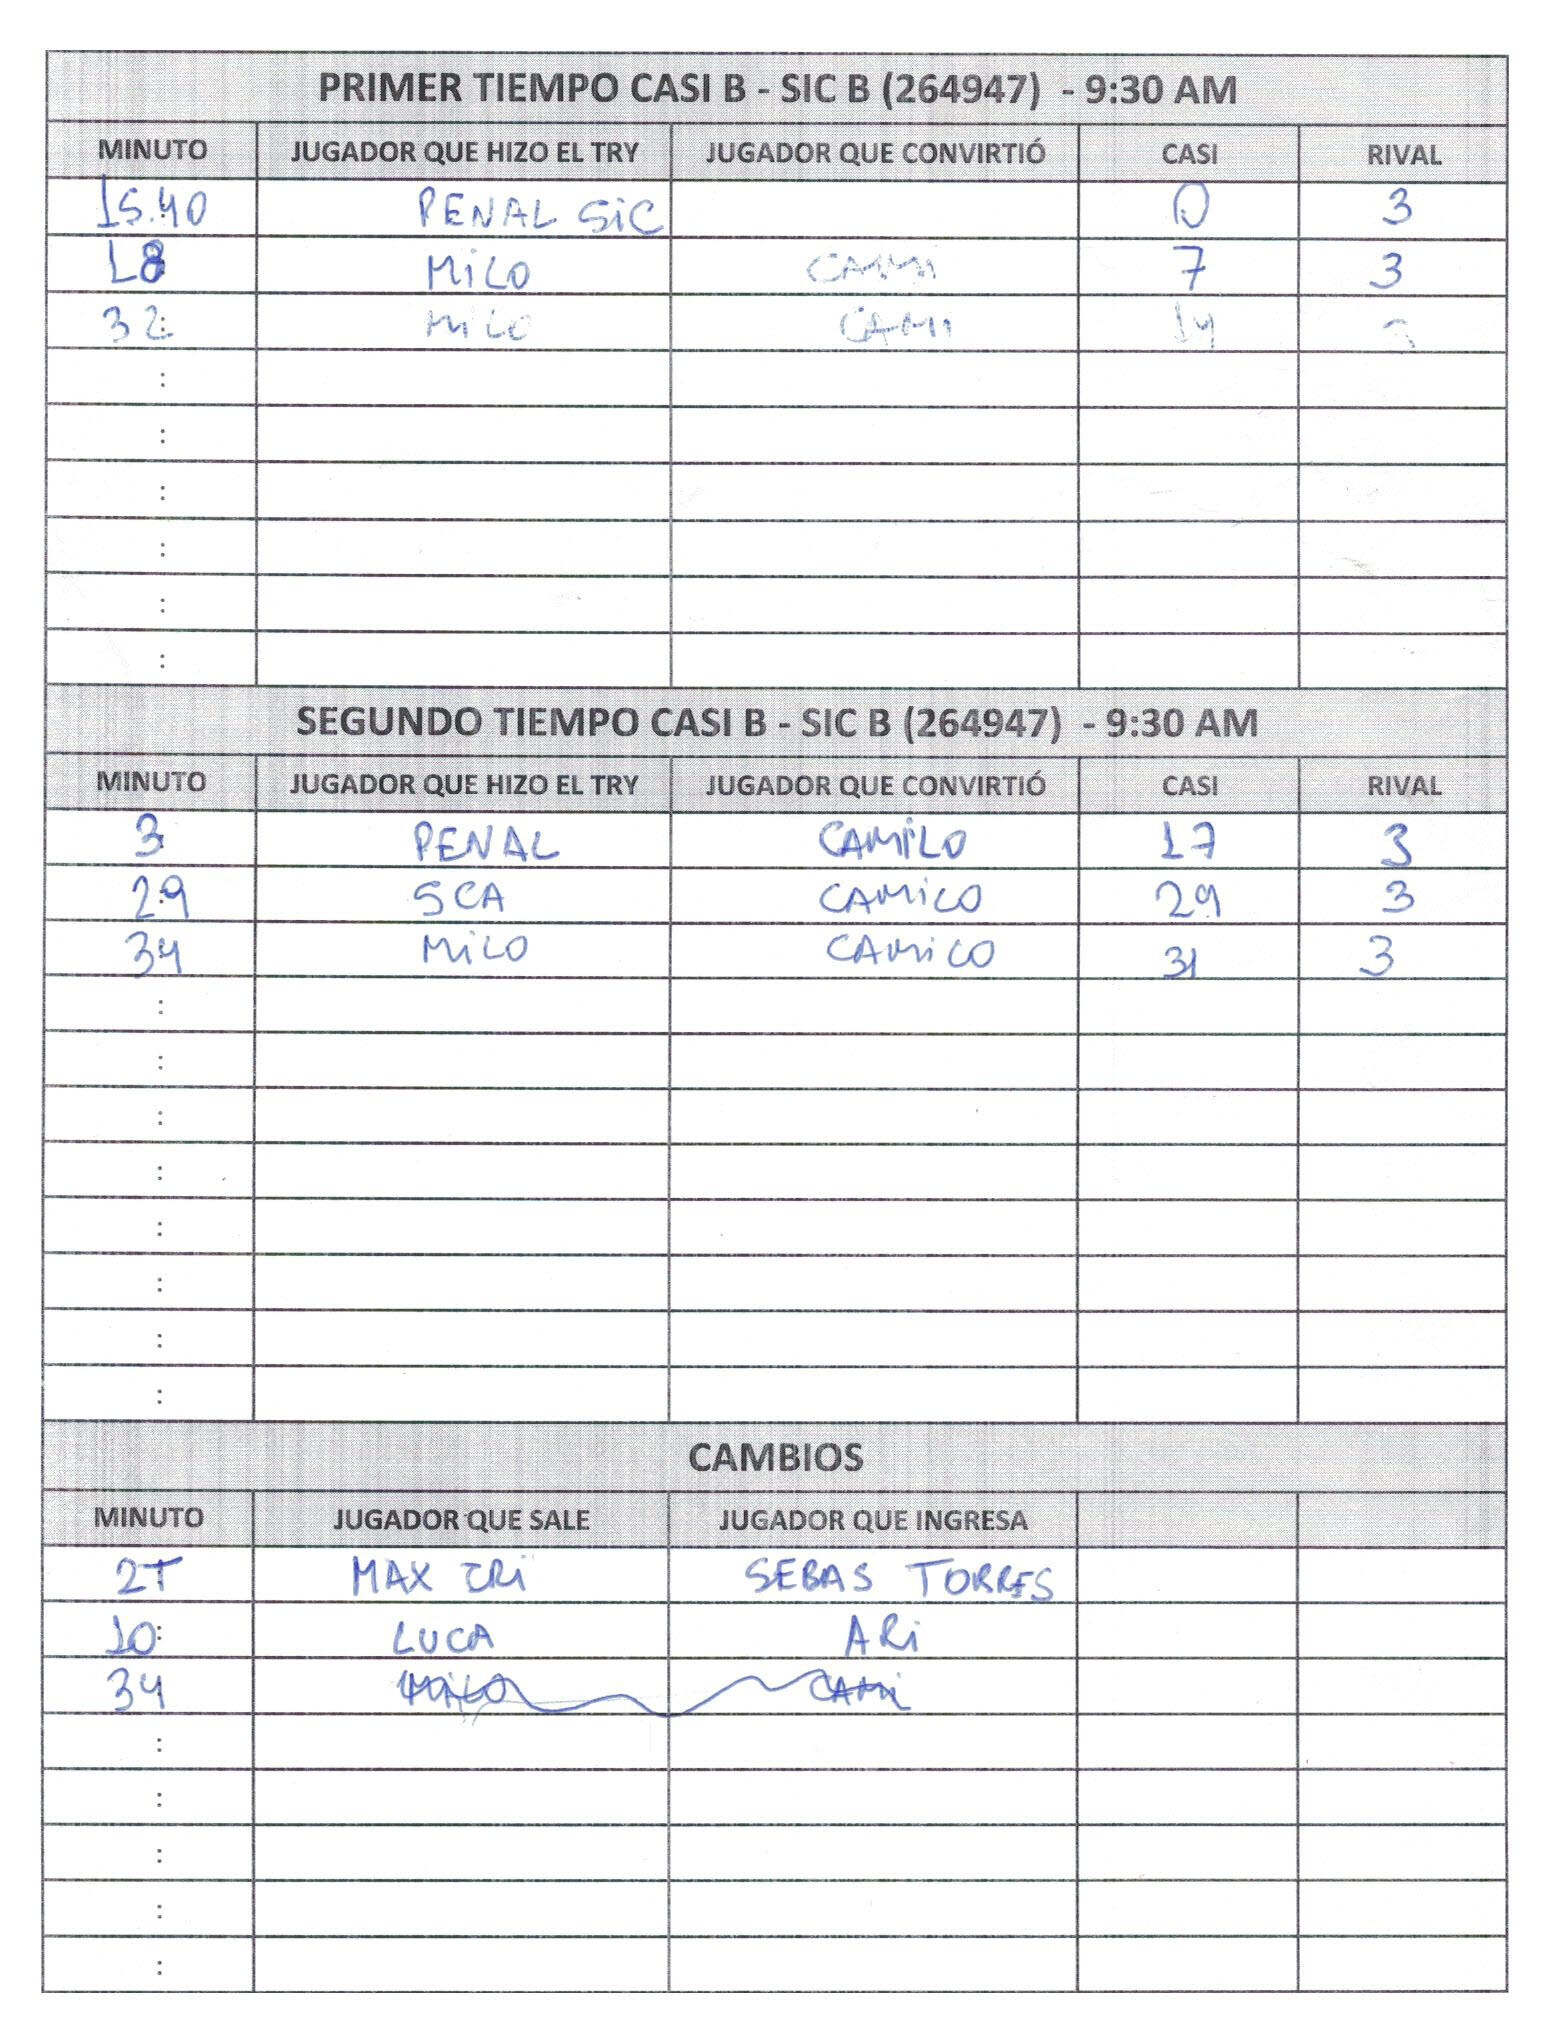 PRIMER TIEMPO CASI B - SIC B (264947) - 9:30 AM
MINUTO JUGADOR QUE HIZO EL TRY JUGADOR QUE CONVIRTIÓ CASI RIVAL
15:40 PENAL SiC 0 3
18 MiLO CAMi 7 3
32 MiLO CAMI 14 3
:
:
:
:
:
:
SEGUNDO TIEMPO CASI B - SIC B (264947) - 9:30 AM
MINUTO JUGADOR QUE HIZO EL TRY JUGADOR QUE CONVIRTIÓ CASI RIVAL
3 PENAL CAMiLO 17 3
29 SCA CAMiLO 29 3
34 MiLO CAMiLO 31 3
:
:
:
:
:
:
:
:
CAMBIOS
MINUTO JUGADOR QUE SALE JUGADOR QUE INGRESA
2T MAX SEBAS TORRES
10 LUCA ARi
34 MiLO CAMi
:
:
:
:
: